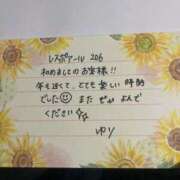 レスポワール 206
初めましてのお客様!!
年も近くて、とても楽しい時間
でした☺ また ぜひ よんで
ください☆☆
ゆり